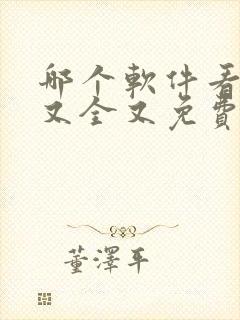 那个軟件看
又全又免費
董澤平